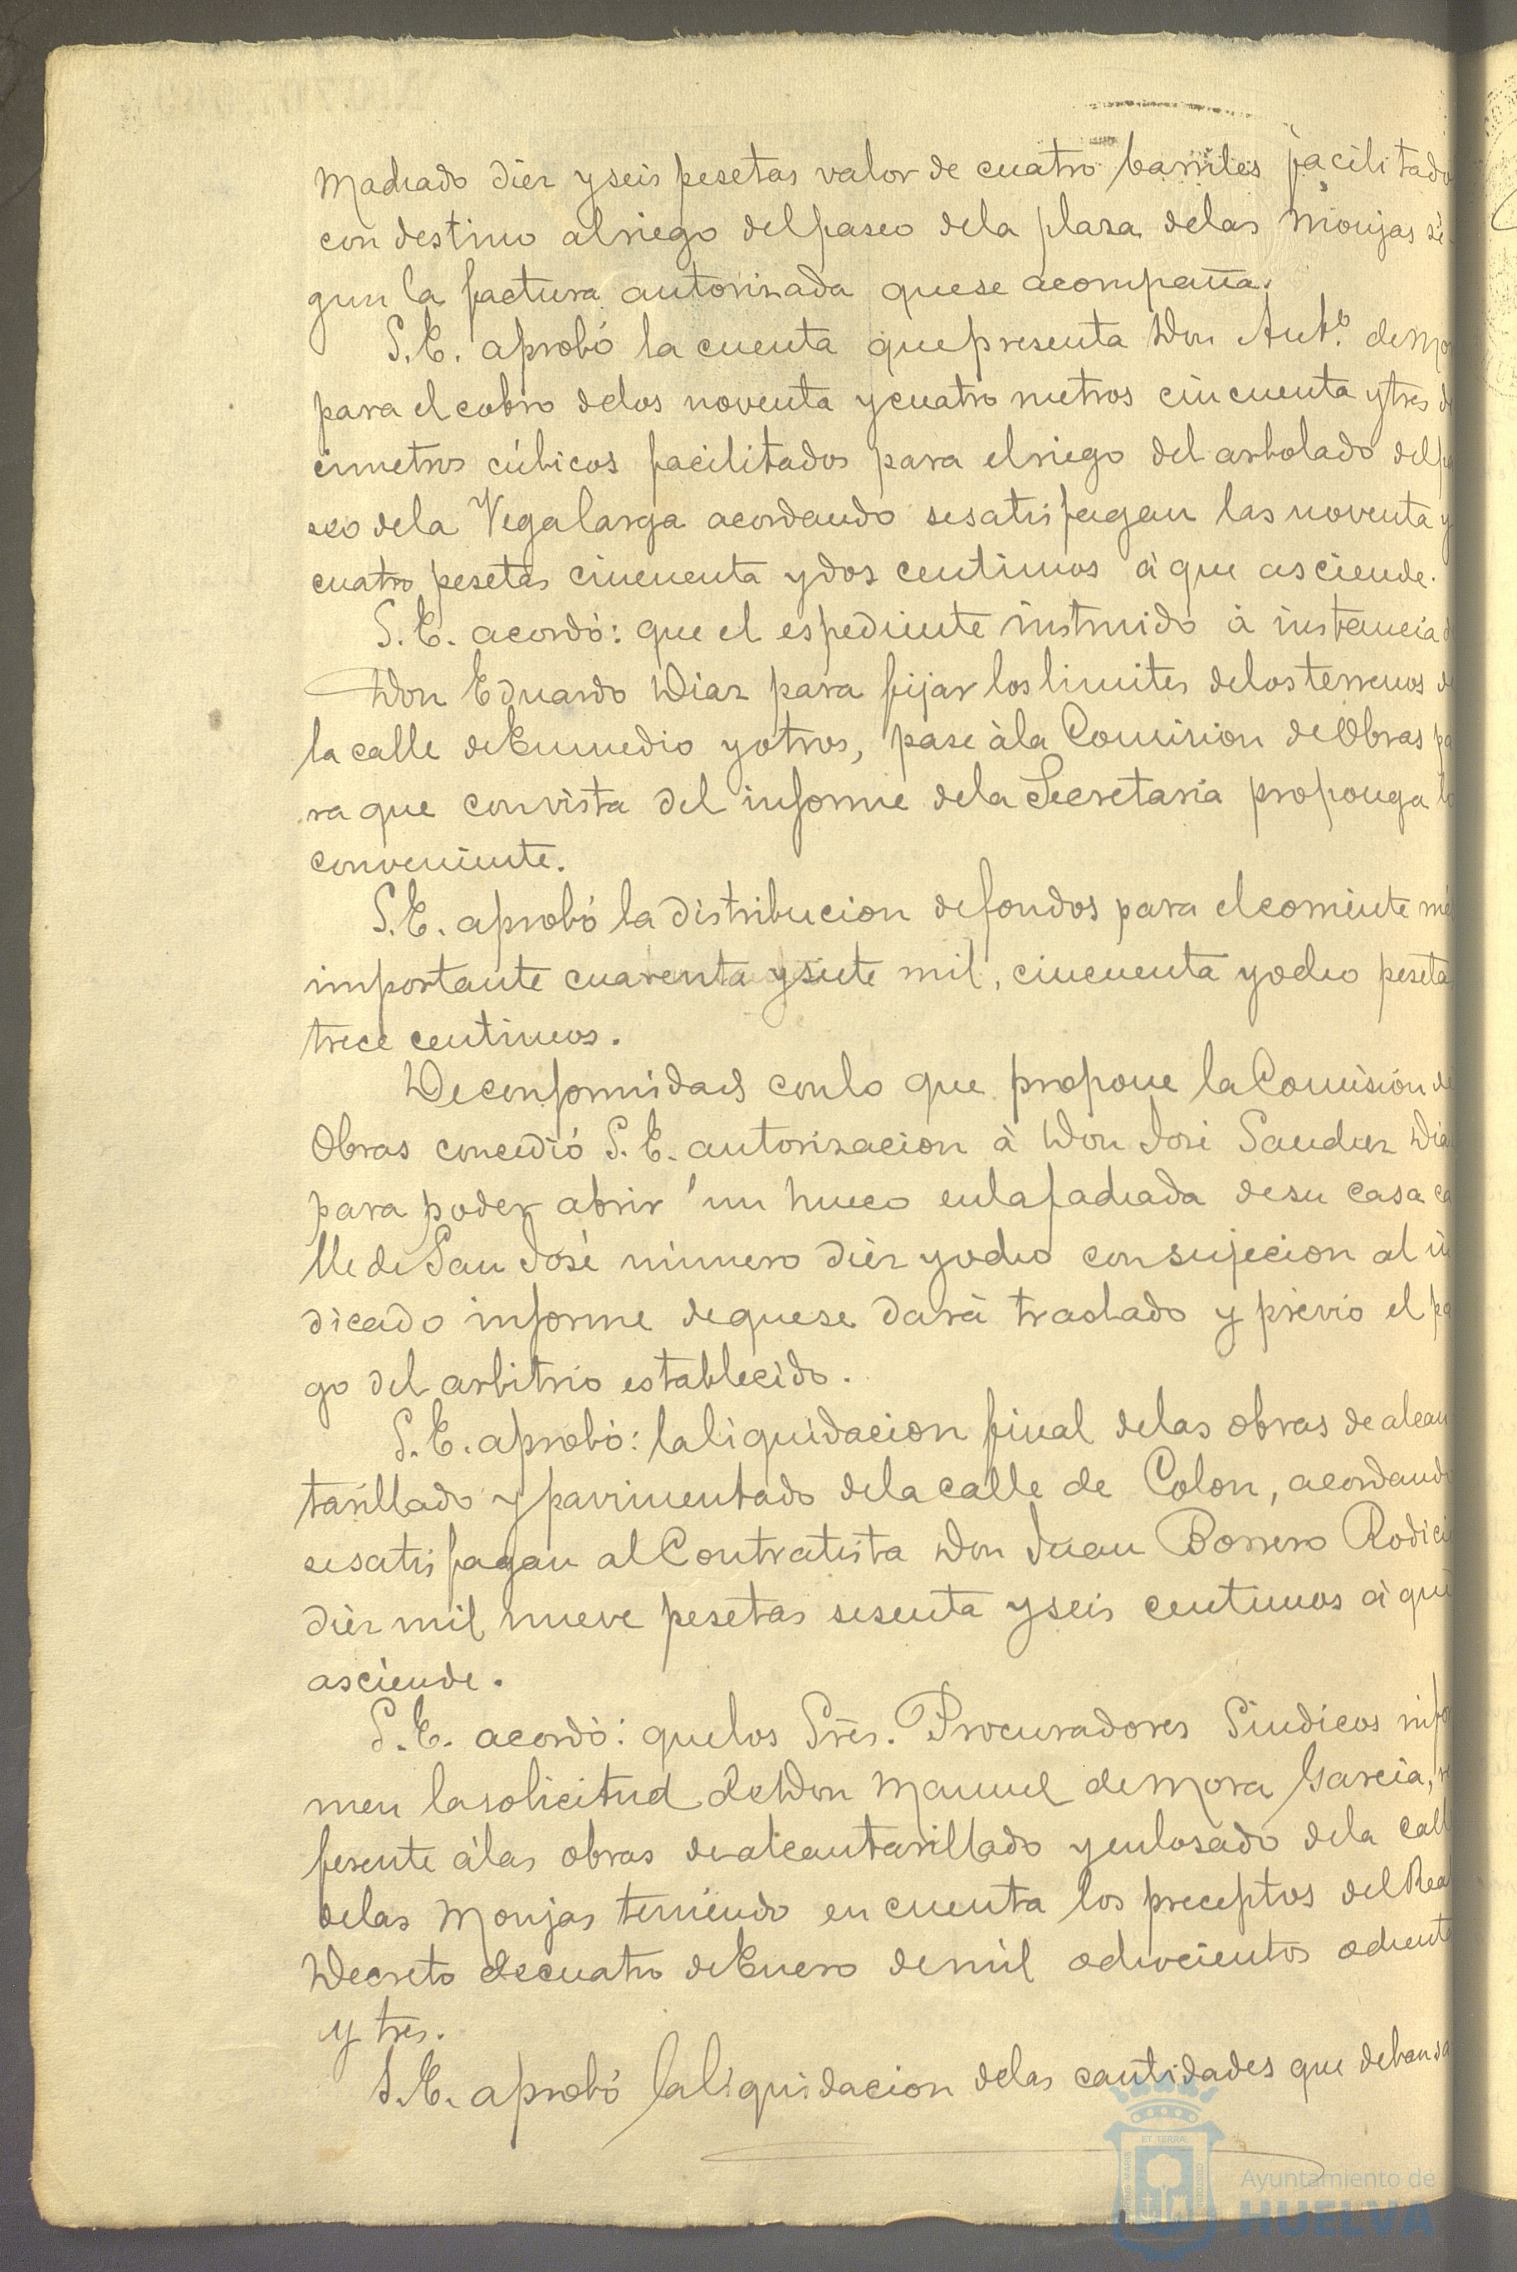 Machado diéz y seis pesetas valor de cuatro barriles facilitado
con destino al riego del paseo de la plaza de las Monjas sé
gun la factura autorizada que se acompaña.
S.E. aprobó la cuenta que presenta Don Antº. de Mo
para el cobro de los noventa y cuatro metros cincuenta y tres d
cimetros cúbicos facilitados para el riego del arbolado del pa
seo de la Vega larga acordando se satisfagan las noventa y
cuatro pesetas cincuenta y dos centimos á que asciende.
S.E. acordó: que el espediente instruido á instancia d
Don Eduardo Diaz para fijar los limites de los terrenos de
la calle de Enmedio y otros, pase á la Comision de Obras pa
ra que con vista del informe de la Secretaria proponga lo
conveniente.
S.E. aprobó la distribucion de fondos para el corriente mé
importante cuarenta y siete mil, cincuenta y ocho peseta
trece centimos.
De conformidad con lo que propone la Comisión de
Obras concedió S.E. autorizacion á Don José Sanchez Dia
para poder abrir un hueco en la fachada de su casa ca
lle de San José número diéz y ocho con sujecion al in
dicado informe de que se dará traslado y prévio el pa
go del arbitrio establecido.
S.E. aprobó: la liquidacion final de las obras de alcan
tarillado y pavimentado de la calle de Colon, acordando
se satisfagan al Contratista Don Juan Borrero Rodici
diéz mil nueve pesetas sesenta y seis centimos á que
asciende.
S.E. acordó: que los Sres. Procuradores Sindicos info
men la solicitud de Don Manuel de Mora Garcia, re
ferente á las obras de alcantarillado y enlosado de la call
de las Monjas teniendo en cuenta los preceptos del Rea
Decreto de cuatro de Enero de mil ochocientos ochenta
y tres.
S.E. aprobó la liquidacion de las cantidades que deban sa
Ayuntamiento de
HUELVA